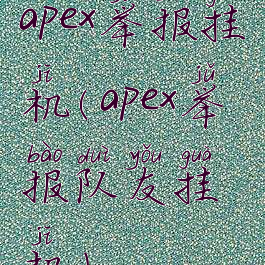 apex举报挂
jī jǔ
机(apex举
bào duì yǒu guà
报队友挂
jī
机)